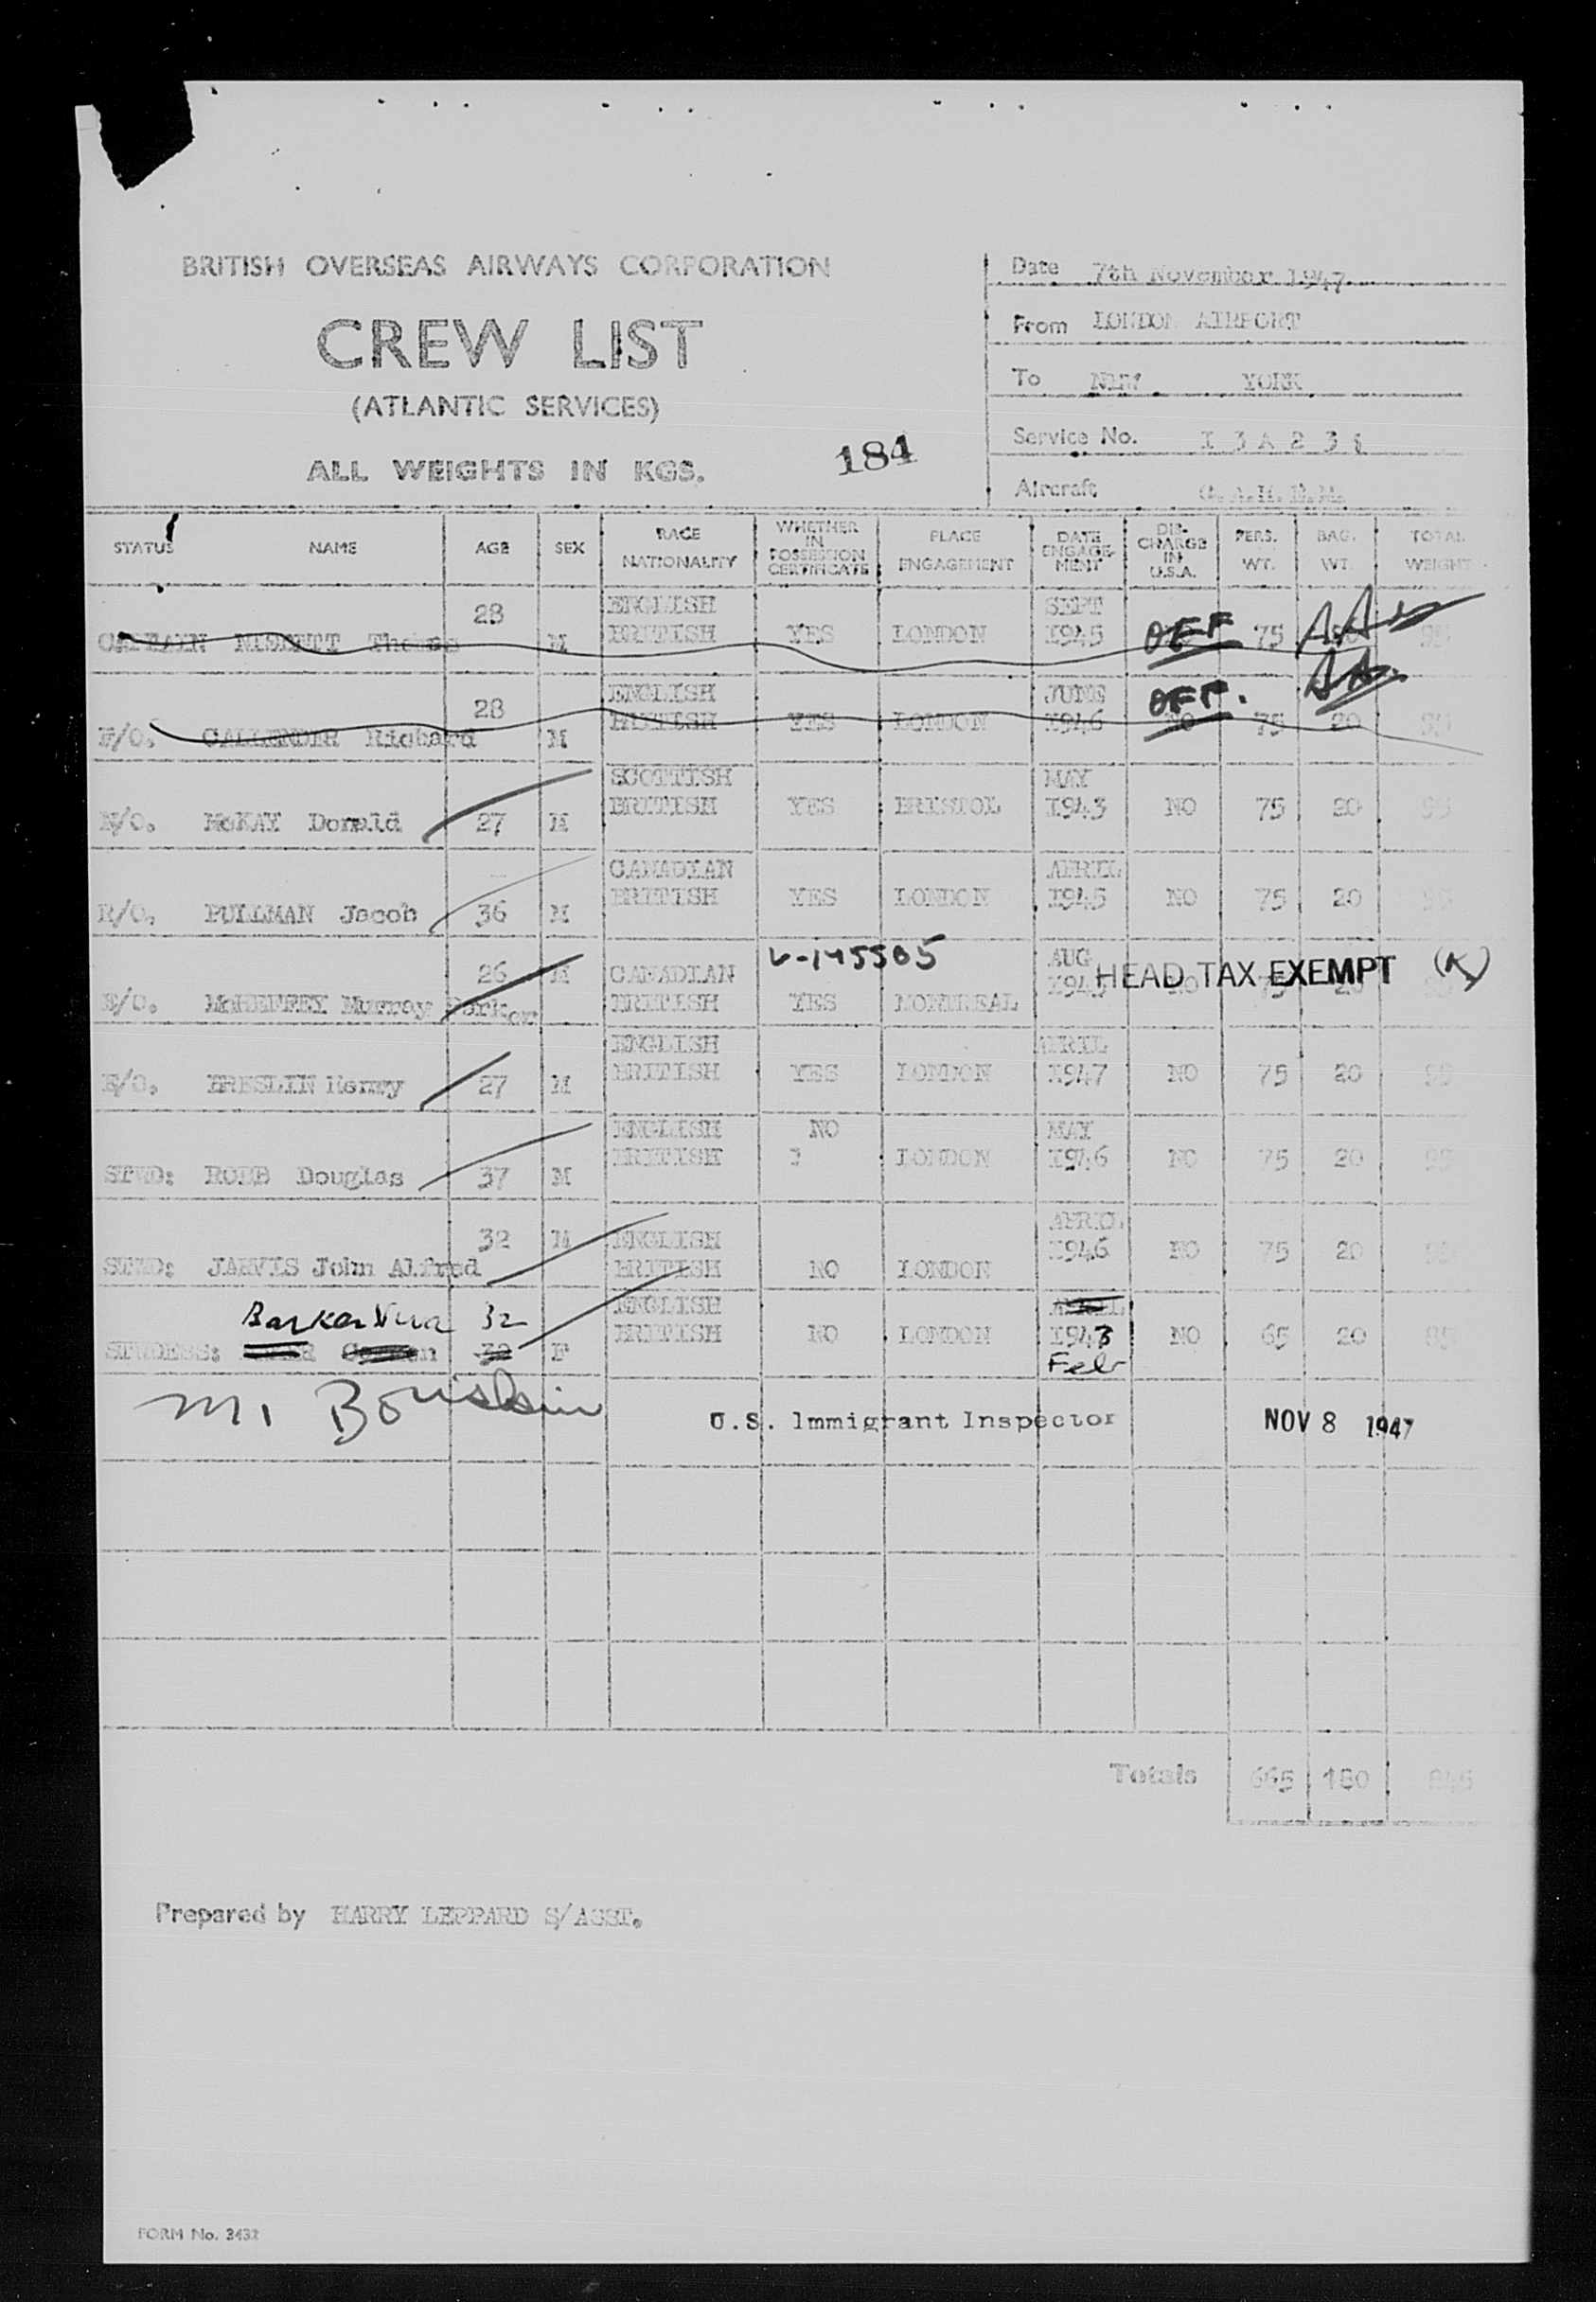 BRITISH OVERSEAS AIRWAYS CORPORATION
CREW LIST
(ATLANTIC SERVICES)
ALL WEIGHTS IN KGS.
184
Date 7th November 1947
From LONDON AIRPORT
To NEW YORK
Service No.
Aircraft
STATUS NAME AGE SEX RACE NATIONALITY WHETHER IN POSSESSION CERTIFICATE PLACE ENGAGEMENT DATE ENGAGE-MENT DIS-CHARGE IN U.S.A. PERS. WT. BAG. WT. TOTAL WEIGHT
CAPTAIN Thomas 28 M ENGLISH BRITISH YES LONDON SEPT 1945 OFF 75
F/O. CALLENDER Richard 28 M ENGLISH BRITISH YES LONDON JUNE 1946 NO OFF. 75 20 95
N/O. McKAY Donald 27 M SCOTTISH BRITISH YES BRISTOL MAY 1943 NO 75 20 95
R/O. PULLMAN Jacob 36 M CANADIAN BRITISH YES LONDON APRIL 1945 NO 75 20 95
McHEFFEY Murray Parker 26 M CANADIAN BRITISH V-145505 YES MONTREAL AUG HEAD TAX EXEMPT (K)
E/O. BRESLIN Henry 27 M ENGLISH BRITISH YES LONDON APRIL 1947 NO 75 20 95
STWD: ROBB Douglas 37 M ENGLISH BRITISH NO LONDON MAY 1946 NO 75 20 95
STWD: JARVIS John Alfred 32 M ENGLISH BRITISH NO LONDON APRIL 1946 NO 75 20 95
STWDESS: Barker Vera 32 F ENGLISH BRITISH NO LONDON 1943 Feb NO 65 20 85
U.S. Immigrant Inspector NOV 8 1947
Totals 665 180 845
Prepared by HARRY LEPPARD S/ASST.
FORM No. 3432